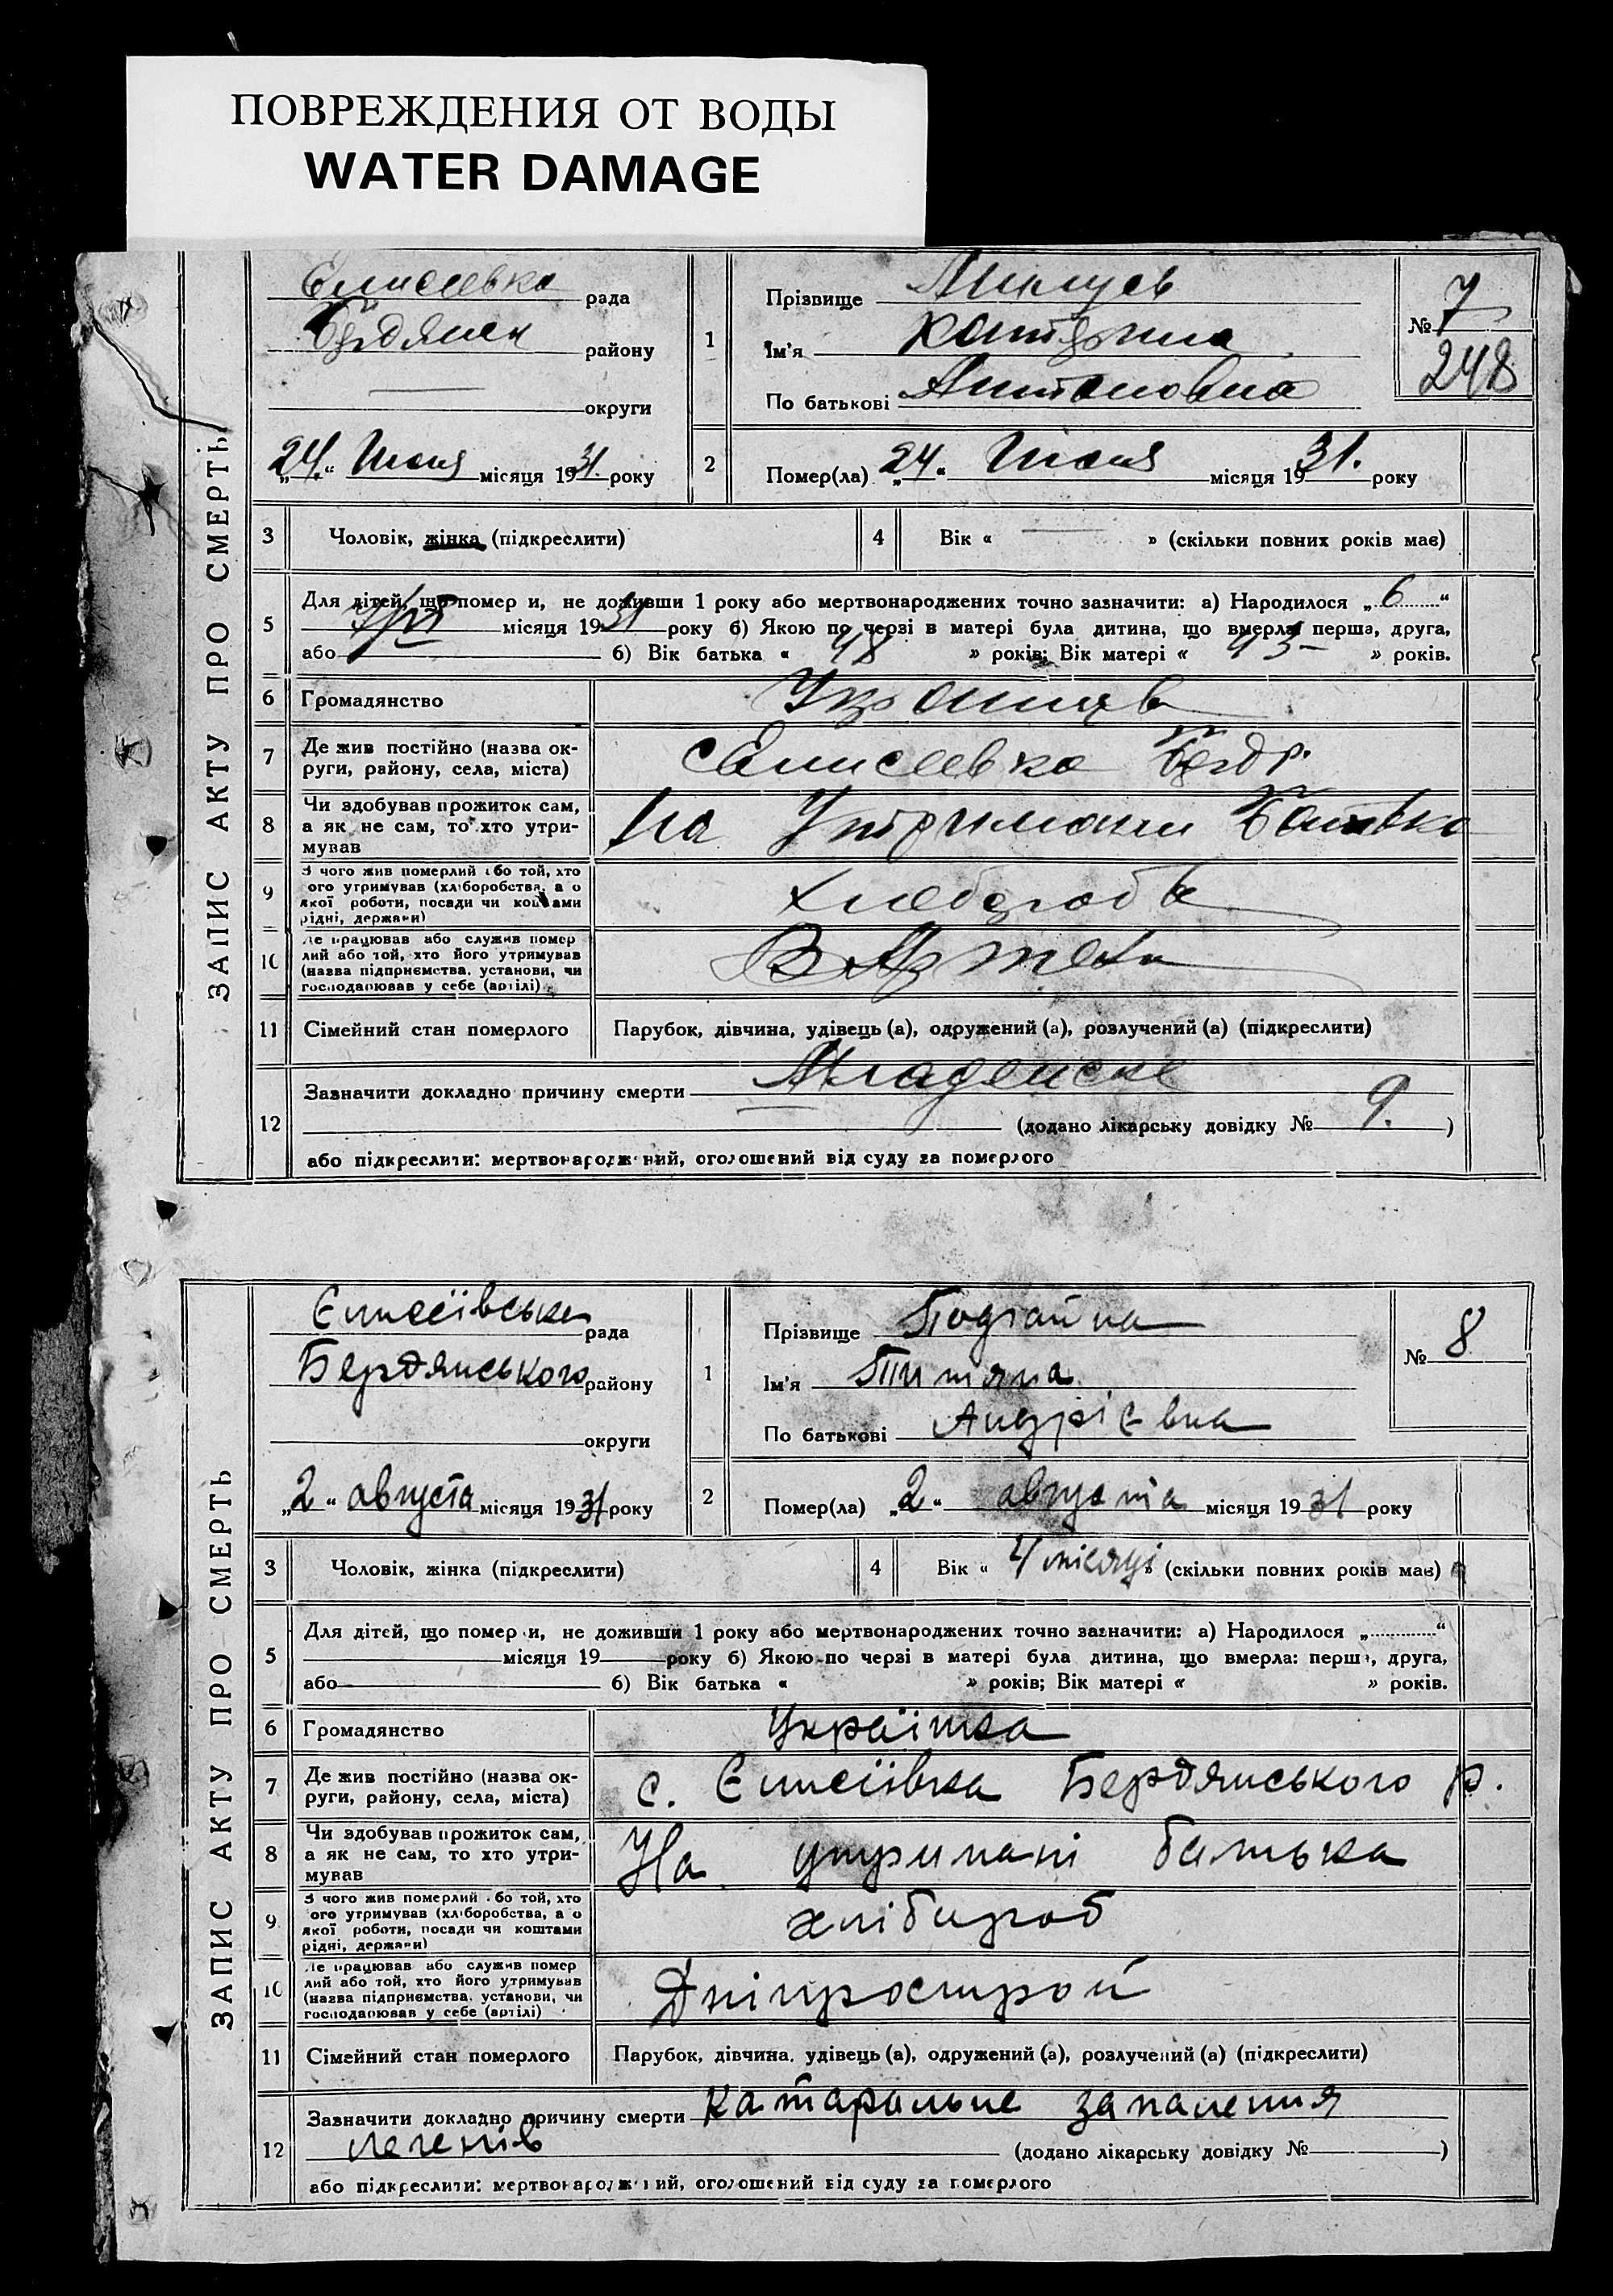 ПОВРЕЖДЕНИЯ ОТ ВОДЫ
WATER DAMAGE
ЗАПИС АКТУ ПРО СМЕРТЬ
Елисеевка рада
Бердянск району
округи
„24“ Июня місяця 1931. року
1
Прізвище
Ім'я Катерина
По батькові Антоновна
№ 7
248
2
Помер(ла) „24“ Июня місяця 1931. року
3 Чоловік, жінка (підкреслити)
4 Вік « — » (скільки повних років має)
5
Для дітей, що померли, не доживши 1 року або мертвонароджених точно зазначити: а) Народилося „6“
місяця 1931 року б) Якою по черзі в матері була дитина, що вмерла: перша, друга,
або б) Вік батька « 48 » років; Вік матері « 43 » років.
6 Громадянство
7 Де жив постійно (назва ок-
руги, району, села, міста)
Елисеевка Бердр.
8 Чи здобував прожиток сам,
а як не сам, то хто утри-
мував
На Утримани Батька
9 З чого жив померлий або той, хто
його утримував (хліборобства, з о
якої роботи, посади чи коштами
рідні, держави)
10 Де працював або служив помер
лий або той, хто його утримував
(назва підприємства, установи, чи
господарював у себе (артілі)
В Артели
11 Сімейний стан померлого
Парубок, дівчина, удівець (а), одружений (а), розлучений (а) (підкреслити)
12
Зазначити докладно причину смерти Младенске
(додано лікарську довідку № 9. )
або підкреслити: мертвонароджений, оголошений від суду за померлого
ЗАПИС АКТУ ПРО СМЕРТЬ
Єлисеївська рада
Бердянського району
округи
„2“ августа місяця 1931 року
1
Прізвище Подгайна
Ім'я Титяна
По батькові Андрієвна
№ 8
2
Помер(ла) „2“ августа місяця 1931 року
3 Чоловік, жінка (підкреслити)
4 Вік « 4 місяці » (скільки повних років має)
5
Для дітей, що померли, не доживши 1 року або мертвонароджених точно зазначити: а) Народилося „ “
місяця 19 року б) Якою по черзі в матері була дитина, що вмерла: перша, друга,
або б) Вік батька « » років; Вік матері « » років.
6 Громадянство
Українка
7 Де жив постійно (назва ок-
руги, району, села, міста)
с. Єлисеївка Бердянського р.
8 Чи здобував прожиток сам,
а як не сам, то хто утри-
мував
На утримані батька
9 З чого жив померлий або той, хто
його утримував (хліборобства, з о
якої роботи, посади чи коштами
рідні, держави)
хлібороб
10 Де працював або служив помер
лий або той, хто його утримував
(назва підприємства, установи, чи
господарював у себе (артілі)
Дніпрострой
11 Сімейний стан померлого
Парубок, дівчина, удівець (а), одружений (а), розлучений (а) (підкреслити)
12
Зазначити докладно причину смерти Катаральне запалення
легенів
(додано лікарську довідку № )
або підкреслити: мертвонароджений, оголошений від суду за померлого